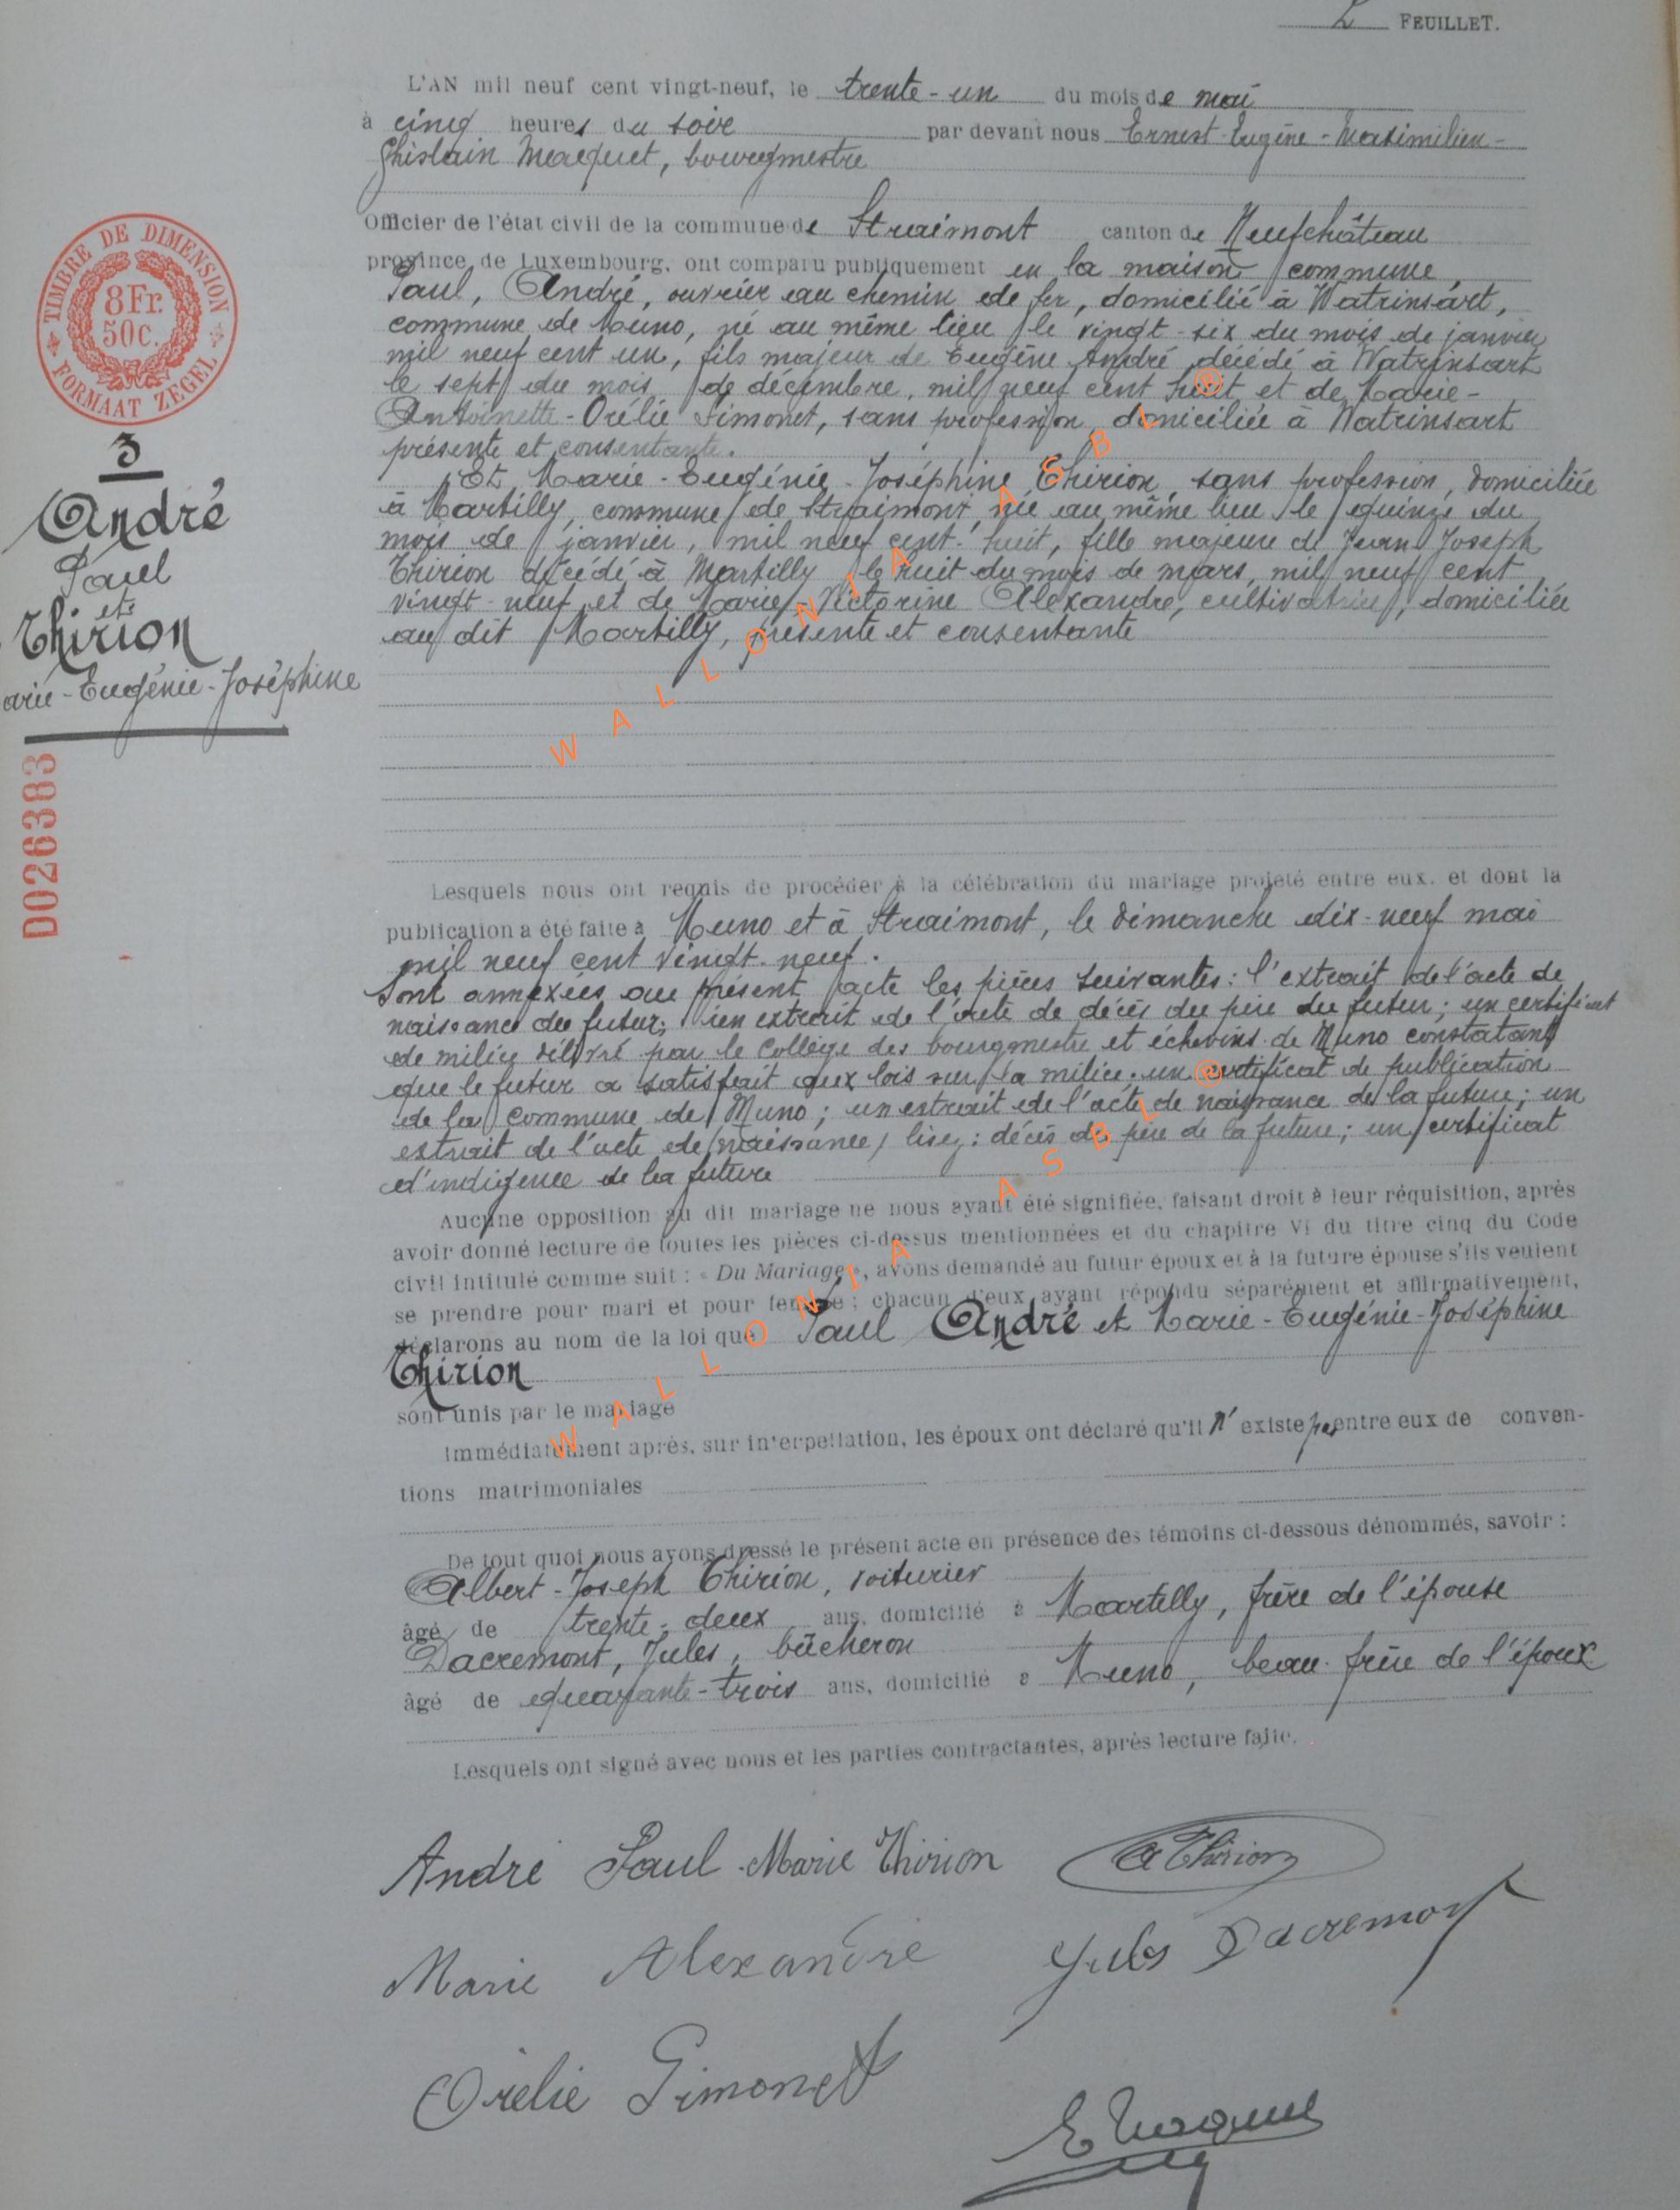 2 FEUILLET.
L'AN mil neuf cent vingt-neuf, le trente-un du mois de mai
à cinq heures du soir par devant nous Ernest-Eugène-Maximilien-
Ghislain Macquet, bourgmestre
Officier de l'état civil de la commune de Straimont canton de Neufchâteau
province de Luxembourg, ont comparu publiquement en la maison commune,
Paul, André, ouvrier au chemin de fer, domicilié à Watrinsart,
commune de Muno, né au même lieu le vingt-six du mois de janvier
mil neuf cent un, fils majeur de Eugène André décédé à Watrinsart
le sept du mois de décembre, mil neuf cent huit et de Marie-
Antoinette-Orélie Simonet, sans profession, domiciliée à Watrinsart
présente et consentante.
Et Marie-Eugénie-Joséphine Thirion, sans profession, domiciliée
à Martilly, commune de Straimont, née au même lieu le quinze du
mois de janvier, mil neuf cent-huit, fille majeure de Jean Joseph
Thirion décédé à Martilly le huit du mois de mars, mil neuf cent
vingt-neuf et de Marie-Victorine Alexandre, cultivatrice, domiciliée
au dit Martilly, présente et consentante
TIMBRE DE DIMENSION
8Fr.
50c.
FORMAAT ZEGEL
3
André
Paul
et
Thirion
arie-Eugénie-Joséphine
D026383
Lesquels nous ont requis de procéder à la célébration du mariage projeté entre eux, et dont la
publication a été faite à Muno et à Straimont, le dimanche dix-neuf mai
mil neuf cent vingt-neuf.
Sont annexées au présent acte les pièces suivantes: l'extrait de l'acte de
naissance du futur; un extrait de l'acte de décès du père du futur; un certificat
de milice délivré par le Collège des bourgmestre et échevins de Muno constatant
que le futur a satisfait aux lois sur la milice; un certificat de publication
de la commune de Muno; un extrait de l'acte de naissance de la future; un
extrait de l'acte de (naissance) lisez: décès du père de la future; un certificat
d'indigence de la future
Aucune opposition au dit mariage ne nous ayant été signifiée, faisant droit à leur réquisition, après
avoir donné lecture de toutes les pièces ci-dessus mentionnées et du chapitre VI du titre cinq du Code
civil intitulé comme suit : « Du Mariage », avons demandé au futur époux et à la future épouse s'ils veulent
se prendre pour mari et pour femme ; chacun d'eux ayant répondu séparément et affirmativement,
déclarons au nom de la loi que Paul André et Marie-Eugénie-Joséphine
Thirion
sont unis par le mariage
Immédiatement après, sur interpellation, les époux ont déclaré qu'il n'existe pas entre eux de conven-
tions matrimoniales
De tout quoi nous avons dressé le présent acte en présence des témoins ci-dessous dénommés, savoir :
Albert-Joseph Thirion, voiturier
âgé de trente-deux ans, domicilié à Martilly, frère de l'épouse
Dacremont, Jules, bûcheron
âgé de quarante-trois ans, domicilié à Muno, beau-frère de l'époux
Lesquels ont signé avec nous et les parties contractantes, après lecture faite.
André Paul Marie Thirion A Thirion
Marie Alexandre Jules Dacremont
Orélie Simonet
E Macquet
WALLONIA ASBL ®
WALLONIA ASBL ®